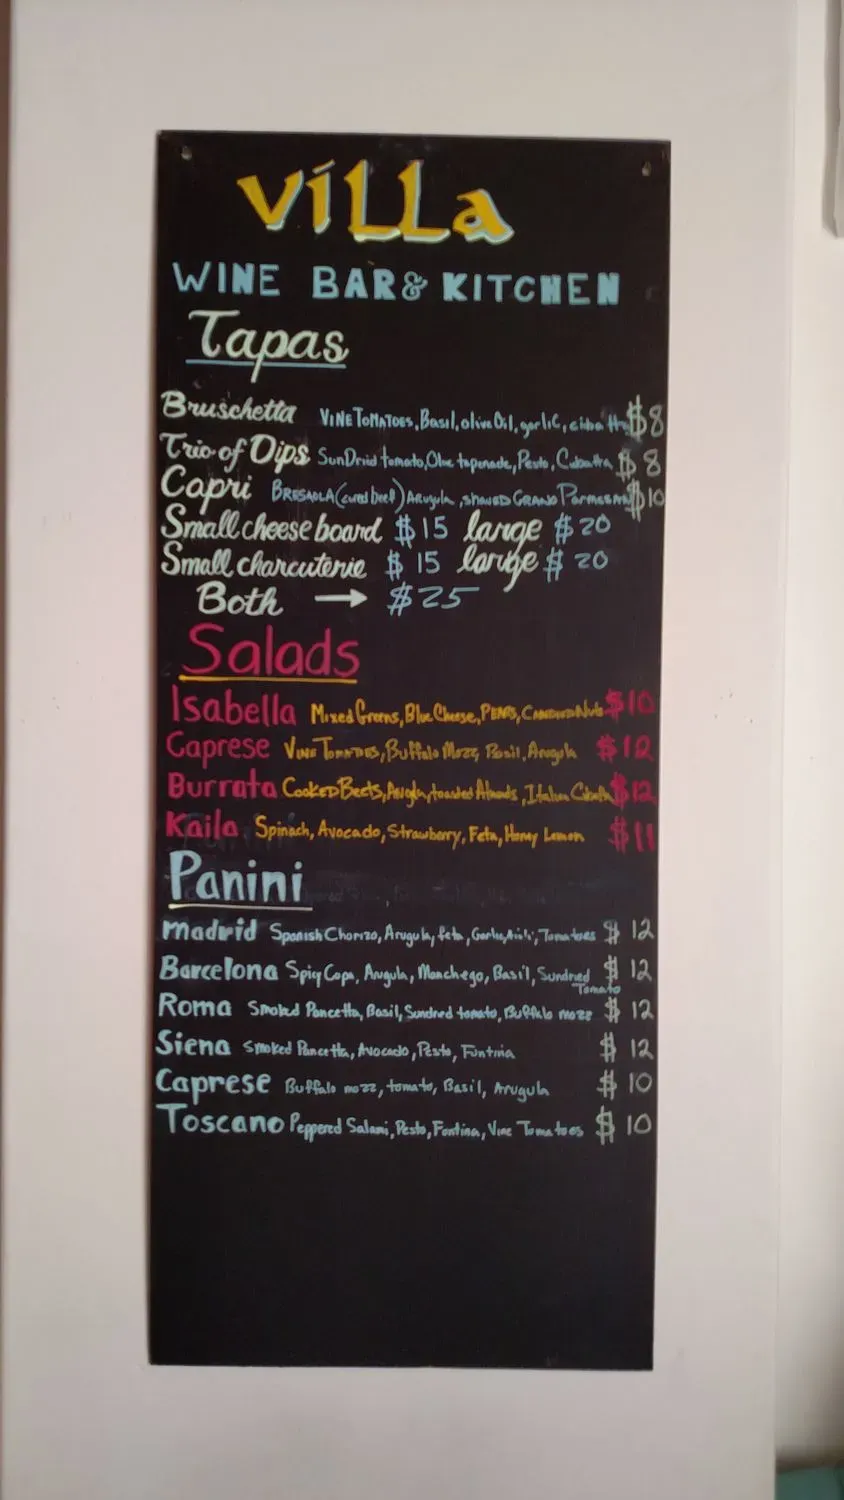 VILLa
WINE BAR & KITCHEN
Tapas
Bruschetta VINE TOMATOES, Basil, olive Oil, garlic, $8
Trio of Dips SunDried tomato, Olive tapenade, Pesto, $8
Capri BRESAOLA (cured beef) Arugula, SHAVED GRANO Parmesan $10
Small cheese board $15 large $20
Small charcuterie $15 large $20
Both → $25
Salads
Isabella Mixed Greens, Blue Cheese, PEARS, CANDIED Nuts $10
Caprese VINE TOMATOES, Buffalo Mozz, Basil, Arugula $12
Burrata COOKED Beets, Arugla, toasted Almonds, Italian $12
Kaila Spinach, Avocado, Strawberry, Feta, Honey Lemon $11
Panini
Madrid Spanish Chorizo, Arugula, feta, Garlic Aioli, Tomatoes $12
Barcelona Spicy Copa, Arugula, Manchego, Basil, Sundried $12
Tomato
Roma Smoked Pancetta, Basil, Sundried tomato, Buffalo mozz $12
Siena Smoked Pancetta, Avocado, Pesto, Funtina $12
Caprese Buffalo mozz, tomato, Basil, Arugula $10
Toscano Peppered Salami, Pesto, Fontina, Vine Tomatoes $10